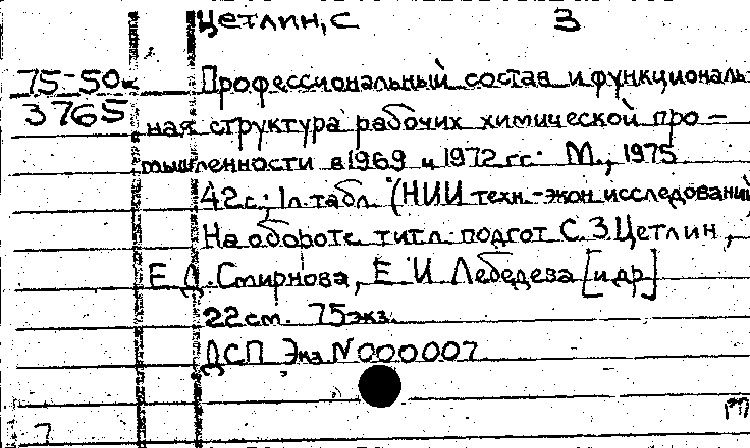 Цетлин, С З
75-50 Профессиональный состав и функциональ
3765 ная структура рабочих химической про-
мышленности в 1969 и 1972 гг. М., 1975
42 с.; 1 л. табл. (НИИ техн.-экон. исследований
На обороте тит. л. подгот. С. З. Цетлин,
Е. Д. Смирнова, Е. И. Лебедева [и др]
22 см. 75 экз.
ДСП Экз. N 000007
7